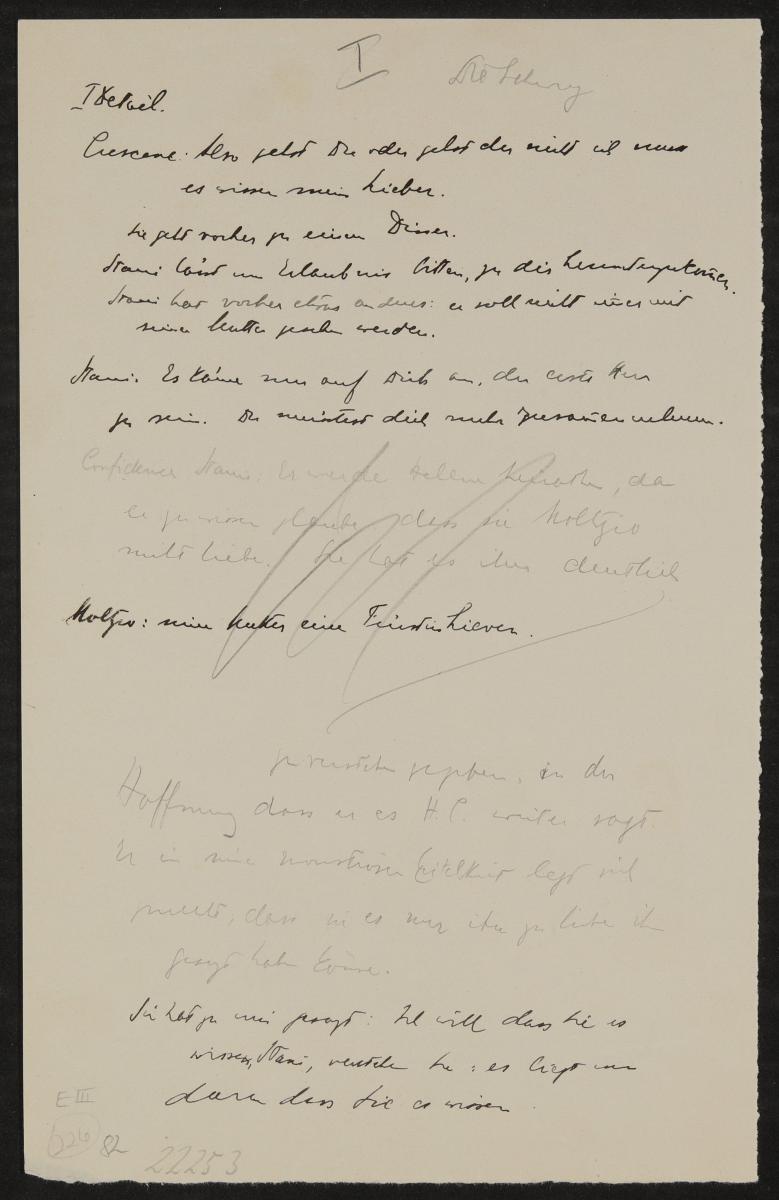 I
I Detail.
Crescence: Also gehst Du oder gehst du nicht ich muss
es wissen mein Lieber.
Sie geht vorher zu einem Diner.
Stani lässt um Erlaubnis bitten, zu dir
Stani hat vorher etwas anderes: er soll nicht im̄er mit
seiner Mutter gesehen werden.
Stani. Es käme nur auf Dich an, der erste Herr
zu sein. Du müsstest dich mehr zusam̄ennehmen.
Confidence Stani: Er werde Helene heirathen, da
er zu wissen glaube dass sie Noltgio
nicht liebe. Sie hat es ihm deutlich
: seine Mutter eine Fürstin Lieven.
zu verstehn gegeben, in der
Hoffnung dass er es H. C. weiter sagt.
Er in seiner monstrosen Eitelkeit legt sich
zurecht, dass sie es nur ihm zu liebe ihm
gesagt haben kön̄e.
Sie hat zu mir gesagt: Ich will dass Sie es
wissen, Stani, verstehen Sie: es liegt mir
daran dass Sie es wissen.
E III
226 82
22253